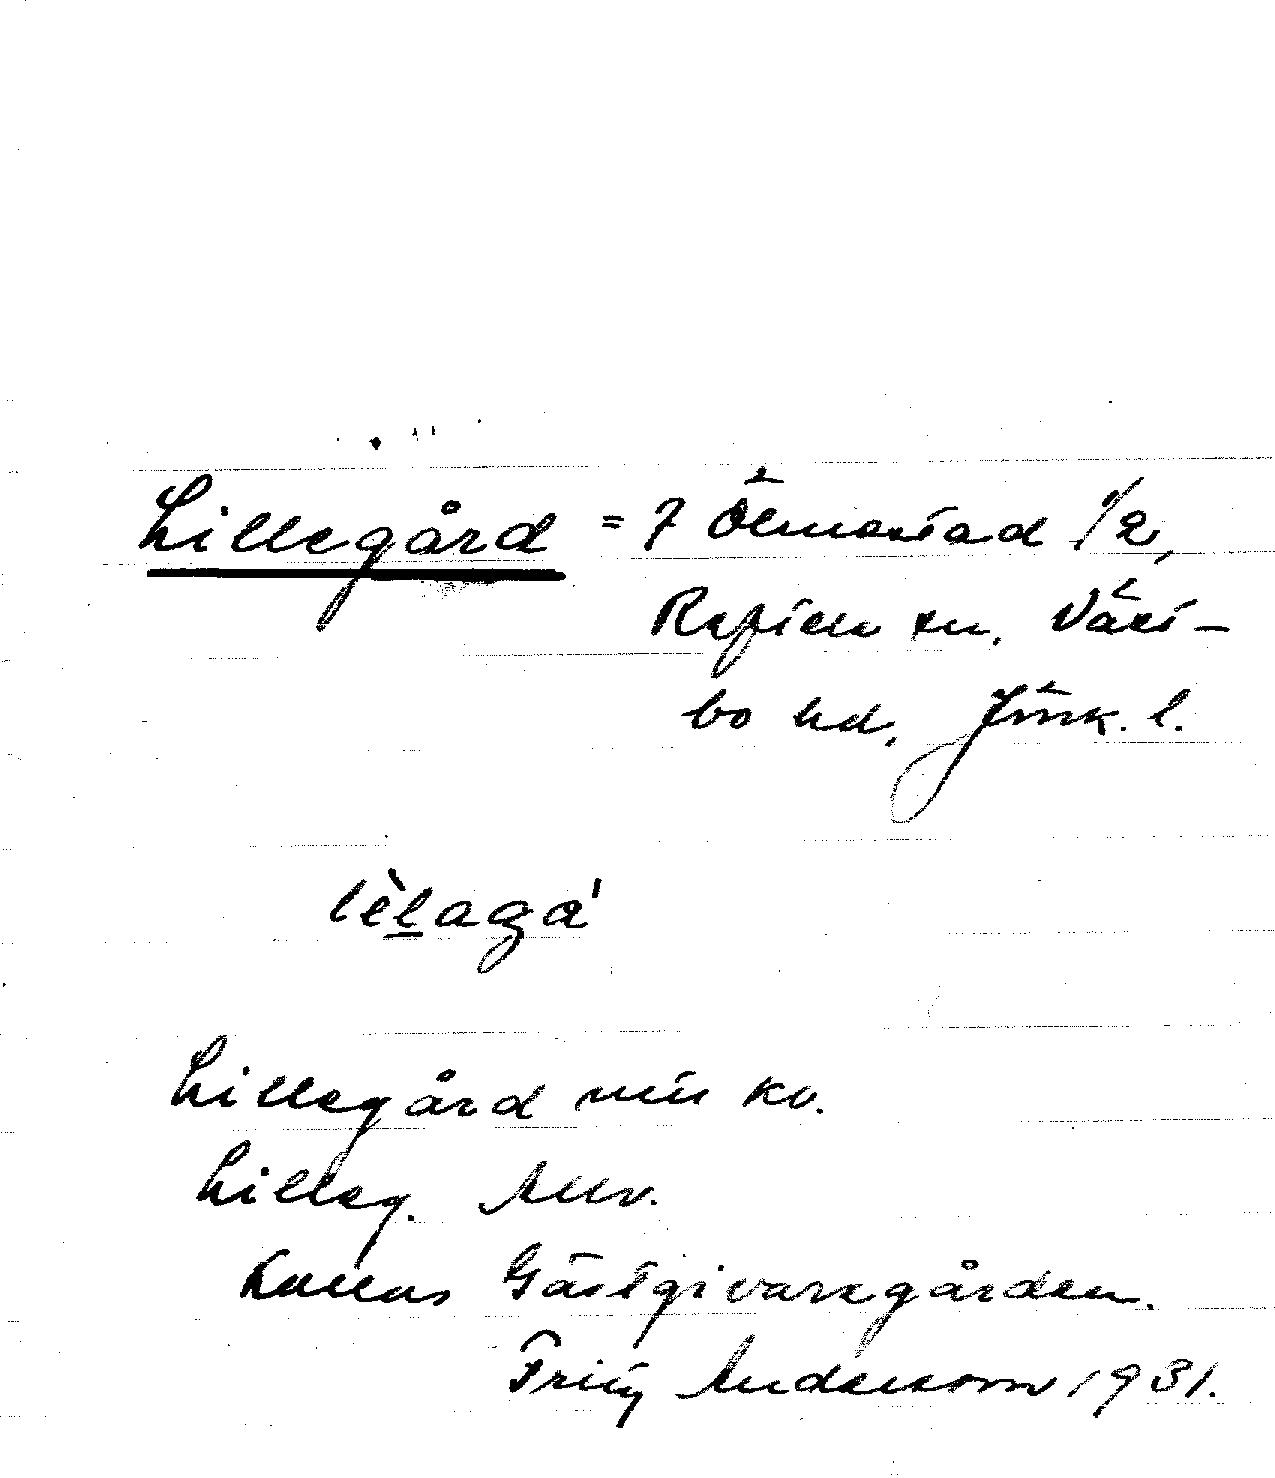 Lillegård = 7 Ölmestad 1/2,
Reftele sn. Väst-
bo hd. Jönk. l.
lèlagá
Lillegård min kv.
Lilleg. Allv.
Kallas Gästgivaregården.
Fritz Anderson 1931.